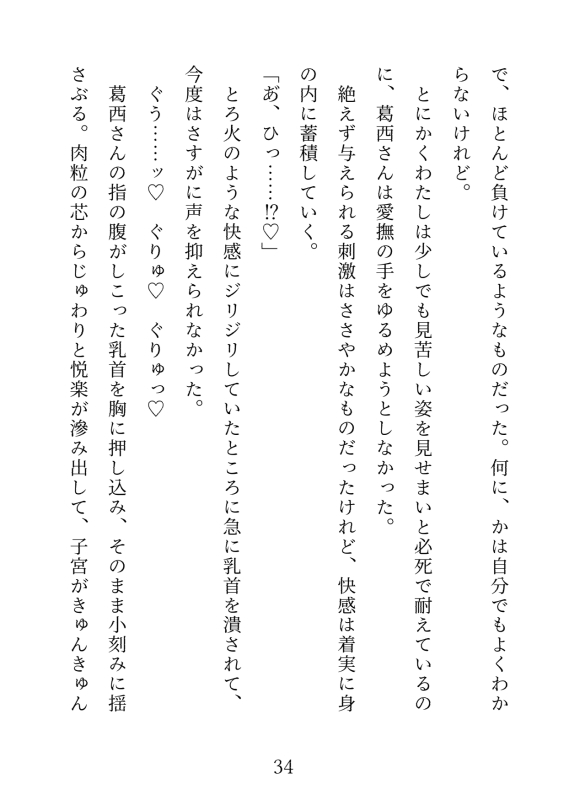 で、ほとんど負けているようなものだった。何に、かは自分でもよくわか
らないけれど。
　とにかくわたしは少しでも見苦しい姿を見せまいと必死で耐えているの
に、葛西さんは愛撫の手をゆるめようとしなかった。
　絶えず与えられる刺激はささやかなものだったけれど、快感は着実に身
の内に蓄積していく。
「あ゛、ひっ……!?♡」
　とろ火のような快感にジリジリしていたところに急に乳首を潰されて、
今度はさすがに声を抑えられなかった。
　ぐう……ッ♡　ぐりゅ♡　ぐりゅっ♡
　葛西さんの指の腹がしこった乳首を胸に押し込み、そのまま小刻みに揺
さぶる。肉粒の芯からじゅわりと悦楽が滲み出して、子宮がきゅんきゅん
34